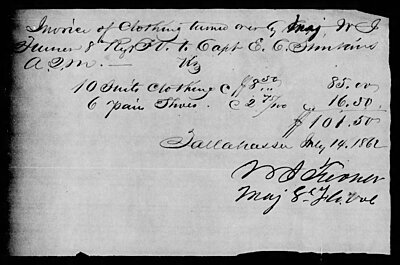 Invoice of Clothing turned over by Maj. W J
Turner 8" Regt Fl. to Capt E. C. Simkins
A Q M. — Viz
10 Suits Clothing @ $8.50 85.00
6 pair Shoes @ 2 75/100 16.50
$101.50
Tallahassee July 14. 1862
W J Turner
Maj 8" Fla Vol